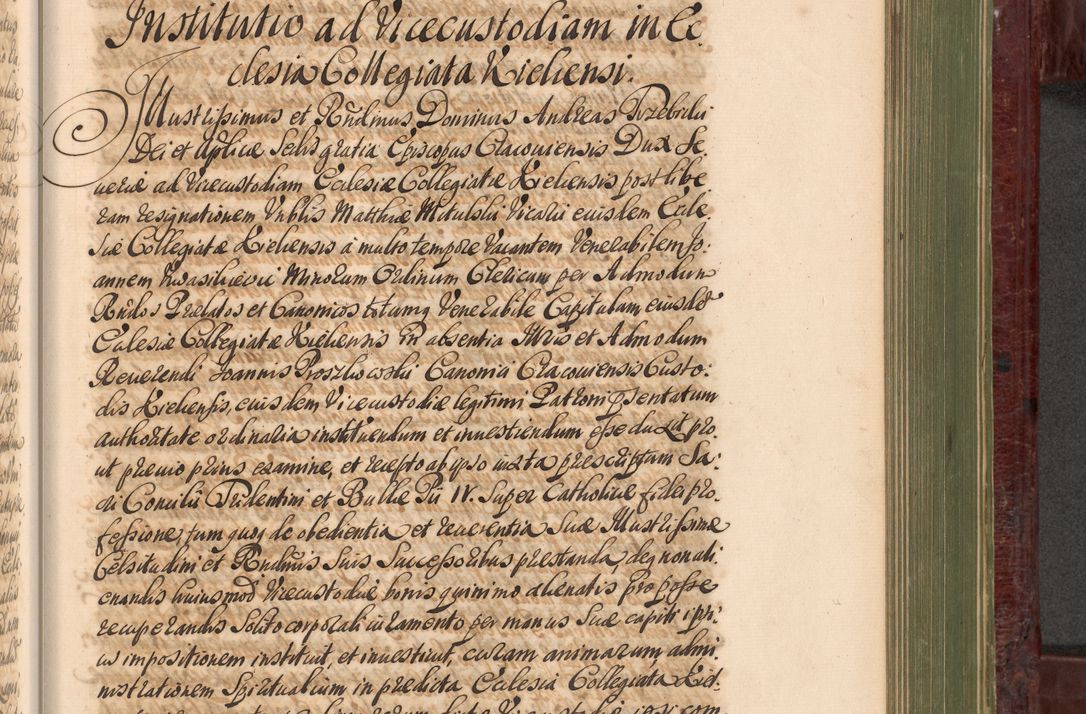 Institutio ad Vicecustodiam in Ec
clesia Collegiata Kielcensi.
Illustrissimus et Rndimus Dominus Andreas Trzebicki
Dei et Aplicæ Sedis gratia Episcopus Cracoviensis Dux Se,
veriæ ad Vicecustodiam Ecclesiæ Collegiatæ Kielcensis post libe
ram resignationem Vnblis Matthiæ Mikulski Vicarii eiusdem Eccle,
siæ Collegiatæ Kielcensis a multo tempore Vacantem Venerabilem Jo:
annem Minorum Ordinum Clericum per Admodum
Rndos Prælatos et Canonicos totumq Venerabile Capitulum eiusdē
Eclesiæ Collegiatæ Kielcensis in absentia Illris et Admodum
Reverendi Joannis Proszkowski Canonici Cracoviensis Custo:
dis Kielcensis, eiusdem Vicecustodiæ legitimi Patroni pṡentatum
authoritate ordinaria instituendum et investiendum esse duxit pro,
ut prævio prius examine, et recepto ab ipso iuxta præscriptum Sa:
cri Concilii Tridentini et Bullæ Pii IV. Super Catholicæ fidei pro,
fessione, tum quoq de obedientia et reverentia Suæ Illustrissimæ
Celsitudini et Rndimis Suis Successoribus præstanda, deq non ali
enandis huiusmodi Vicecustodiæ bonis quinimo alienatis pro posse
recuperandis Solito corporali iuramento per manus Suæ capiti ipsi:
us impositionem instituit, et investivit, curam animarum admi
nistrationem Spiritualium in prædicta Ecclesia Collegiata Kiel: